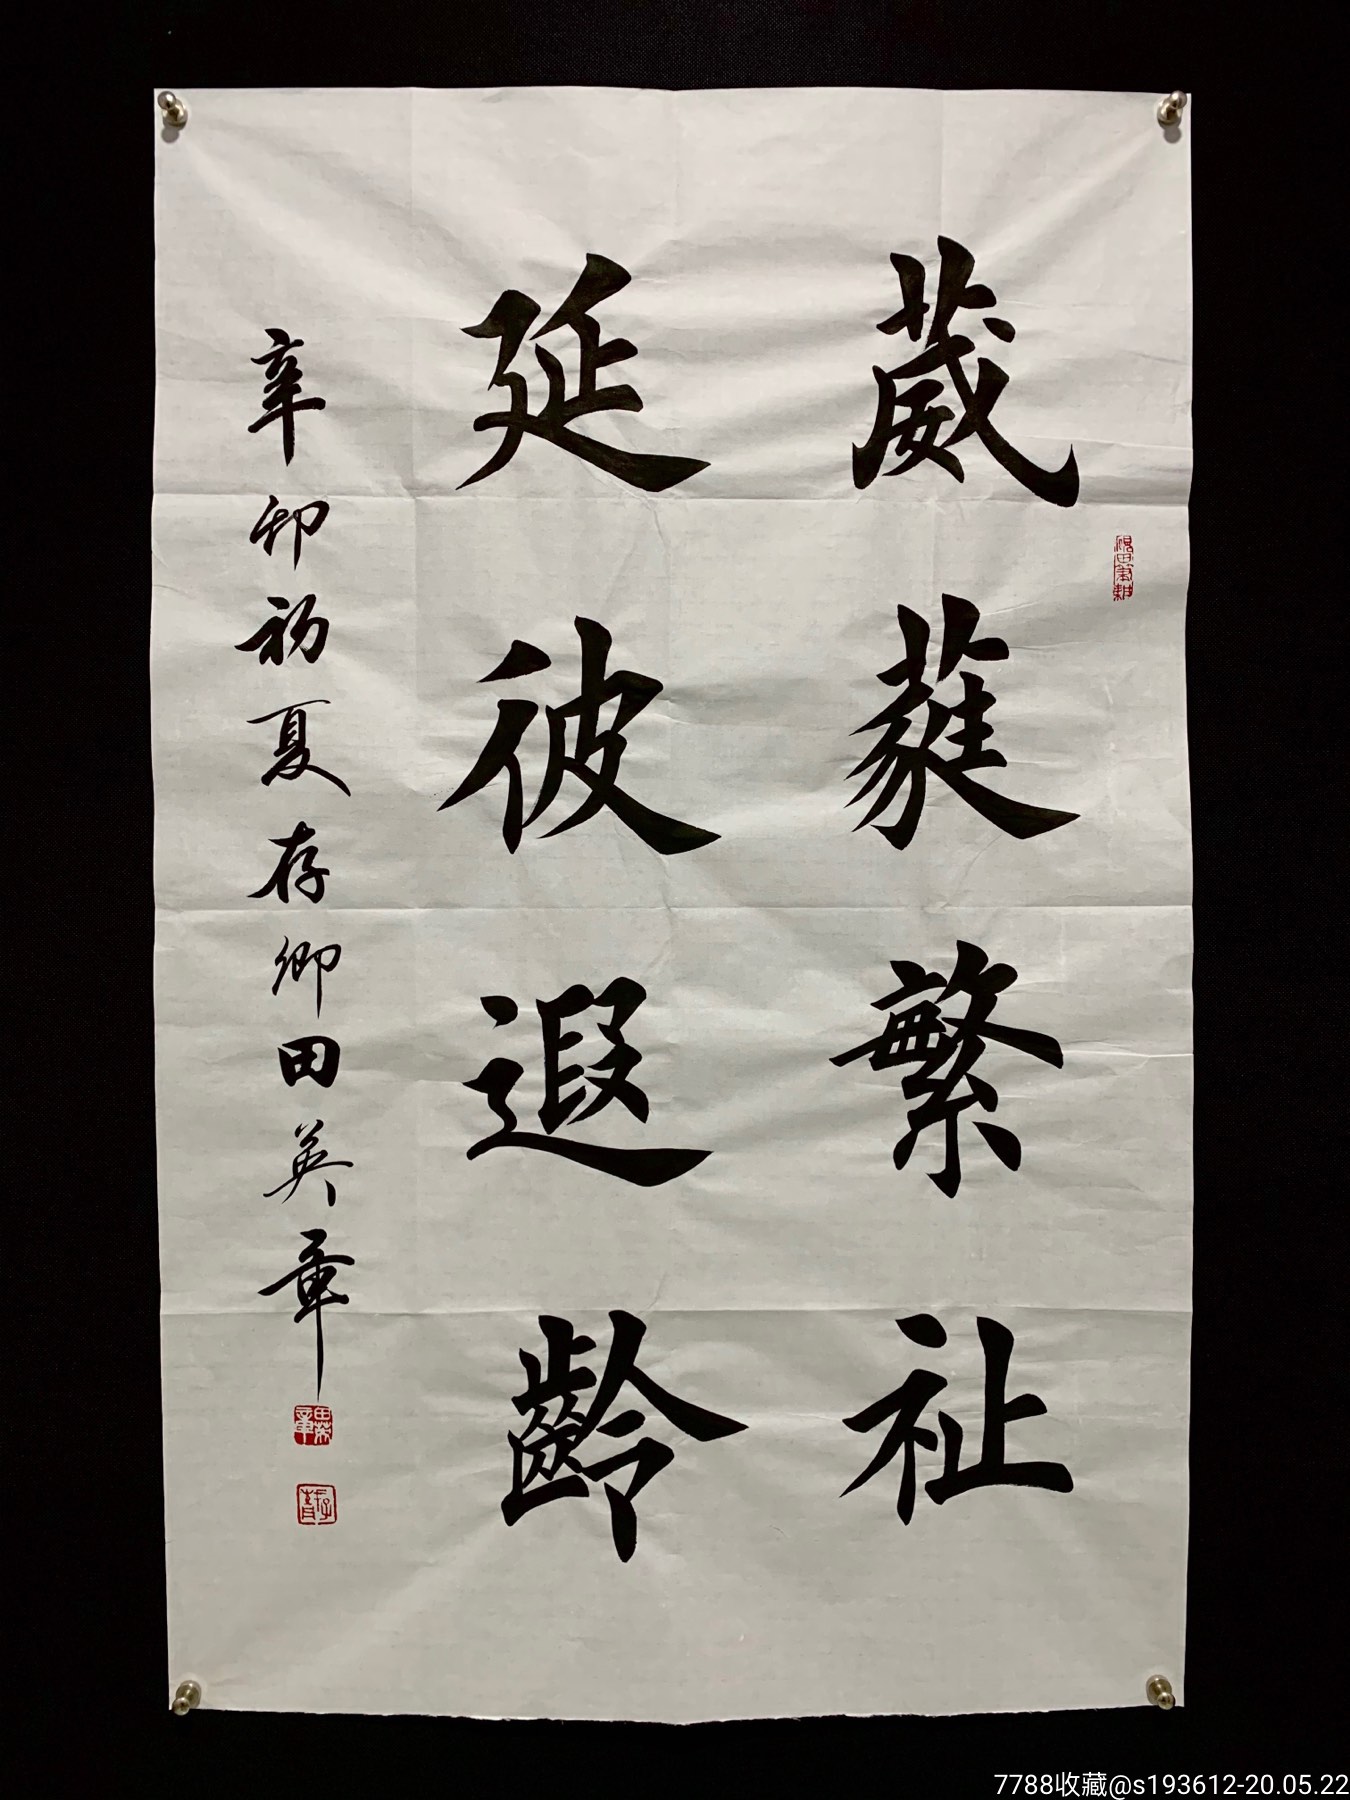 葳蕤繁祉
延彼遐齡
辛卯初夏存卿田英章
田英章
存青
7788收藏@s193612-20.05.22